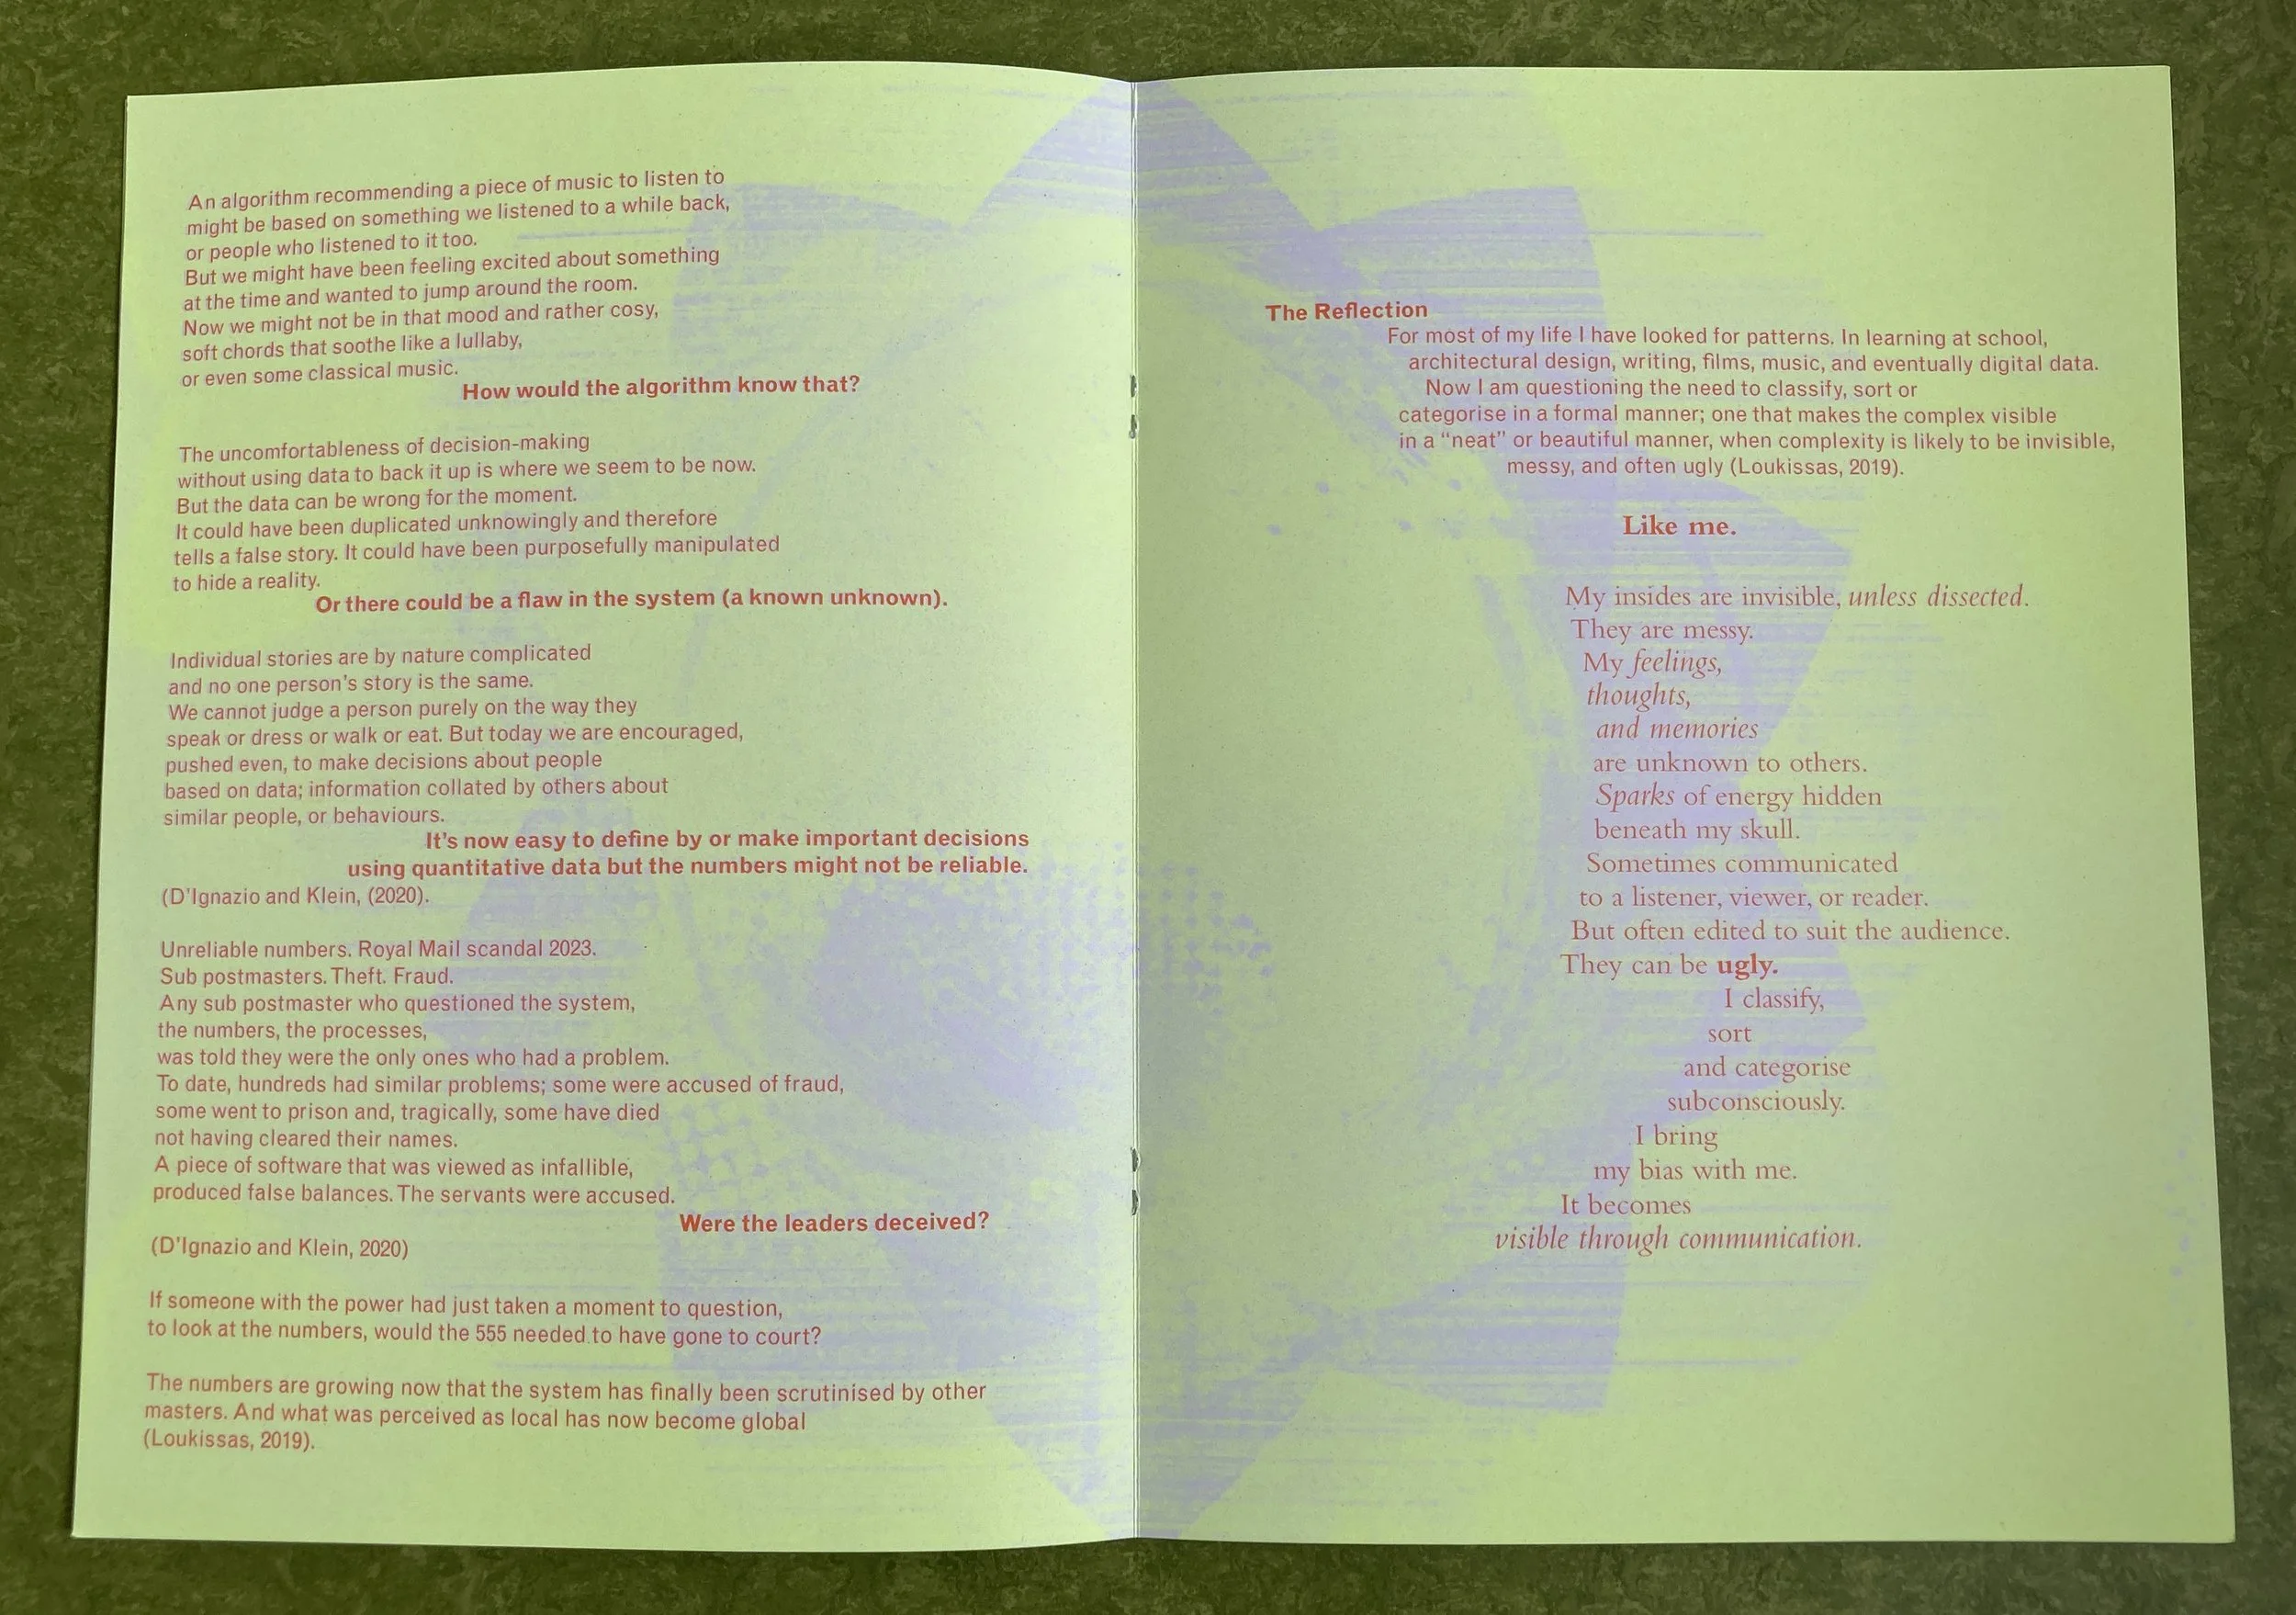 An algorithm recommending a piece of music to listen to
might be based on something we listened to a while back,
or people who listened to it too.
But we might have been feeling excited about something
at the time and wanted to jump around the room.
Now we might not be in that mood and rather cosy,
soft chords that soothe like a lullaby,
or even some classical music.
How would the algorithm know that?
The uncomfortableness of decision-making
without using data to back it up is where we seem to be now.
But the data can be wrong for the moment.
It could have been duplicated unknowingly and therefore
tells a false story. It could have been purposefully manipulated
to hide a reality.
Or there could be a flaw in the system (a known unknown).
Individual stories are by nature complicated
and no one person's story is the same.
We cannot judge a person purely on the way they
speak or dress or walk or eat. But today we are encouraged,
pushed even, to make decisions about people
based on data; information collated by others about
similar people, or behaviours.
It's now easy to define by or make important decisions
using quantitative data but the numbers might not be reliable.
(D'Ignazio and Klein, (2020).
Unreliable numbers. Royal Mail scandal 2023.
Sub postmasters. Theft. Fraud.
Any sub postmaster who questioned the system,
the numbers, the processes,
was told they were the only ones who had a problem.
To date, hundreds had similar problems; some were accused of fraud,
some went to prison and, tragically, some have died
not having cleared their names.
A piece of software that was viewed as infallible,
produced false balances. The servants were accused.
Were the leaders deceived?
(D'Ignazio and Klein, 2020)
If someone with the power had just taken a moment to question,
to look at the numbers, would the 555 needed to have gone to court?
The numbers are growing now that the system has finally been scrutinised by other
masters. And what was perceived as local has now become global
(Loukissas, 2019).
The Reflection
For most of my life I have looked for patterns. In learning at school,
architectural design, writing, films, music, and eventually digital data.
Now I am questioning the need to classify, sort or
categorise in a formal manner; one that makes the complex visible
in a “neat” or beautiful manner, when complexity is likely to be invisible,
messy, and often ugly (Loukissas, 2019).
Like me.
My insides are invisible, unless dissected.
They are messy.
My feelings,
thoughts,
and memories
are unknown to others.
Sparks of energy hidden
beneath my skull.
Sometimes communicated
to a listener, viewer, or reader.
But often edited to suit the audience.
They can be ugly.
I classify,
sort
and categorise
subconsciously.
I bring
my bias with me.
It becomes
visible through communication.